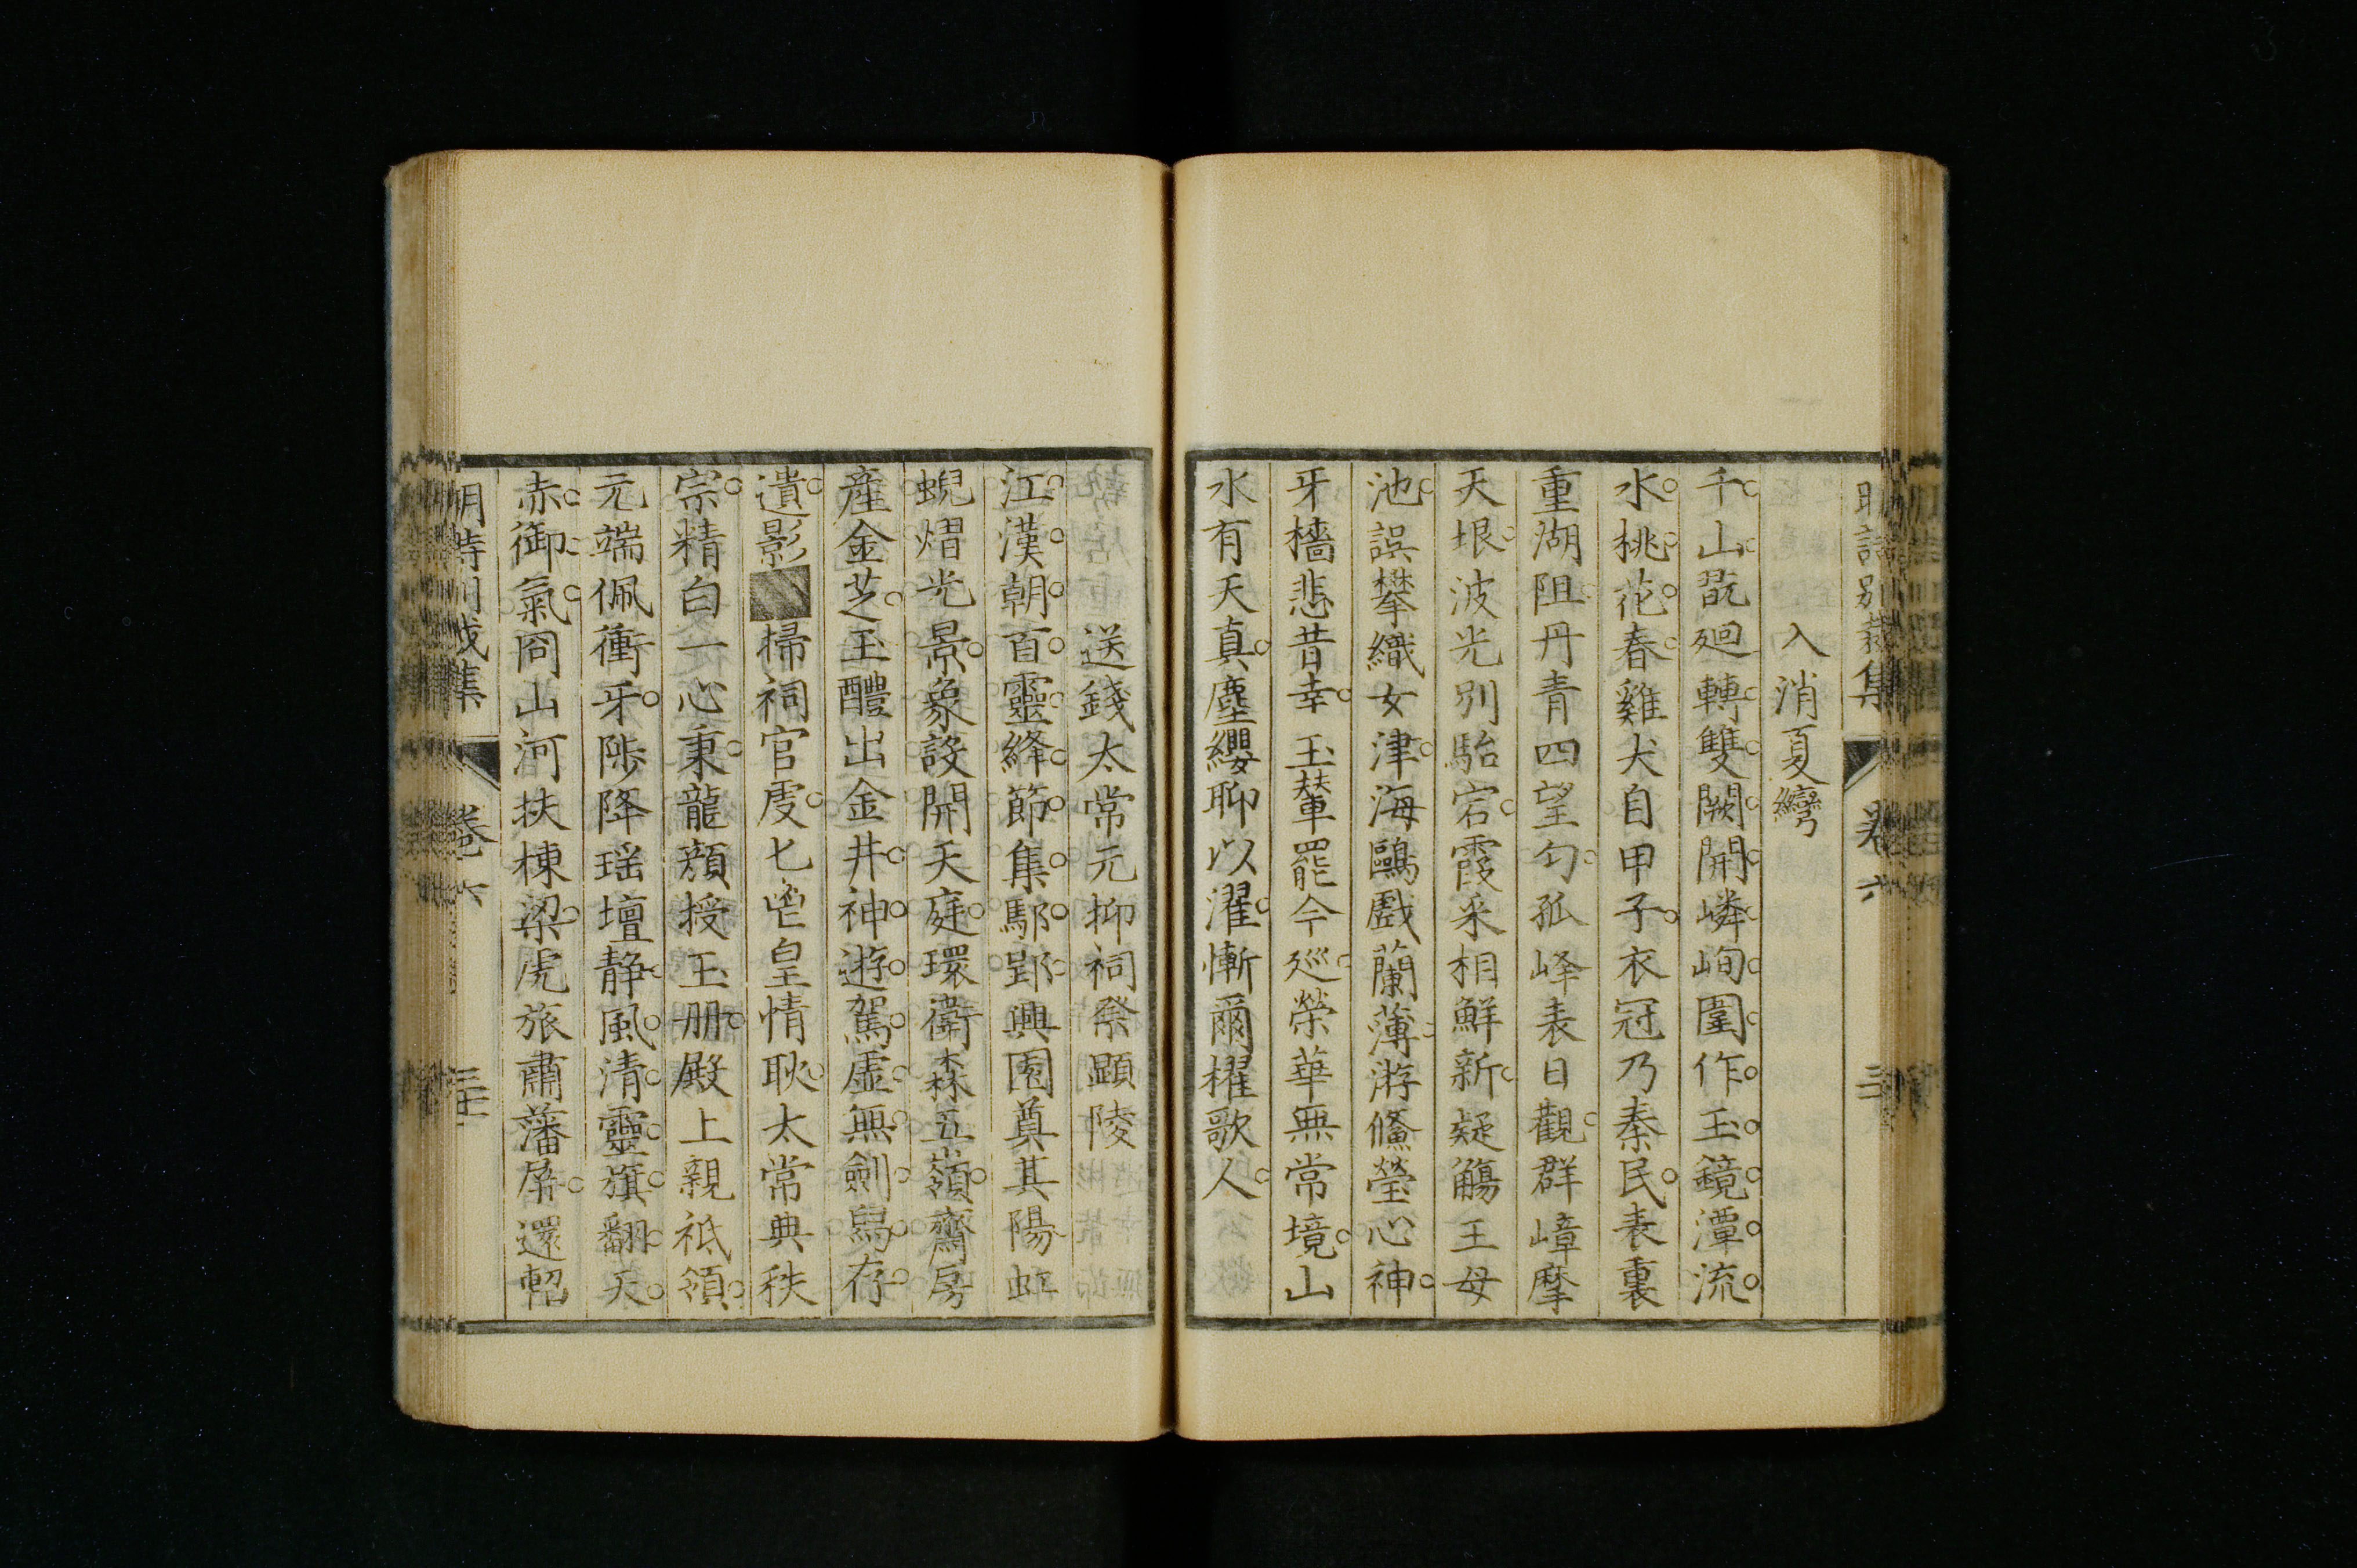 明詩別裁集 卷六
入消夏灣
千山翫廻轉雙闕開嶙峋圍作玉鏡潭流
水桃花春雞犬自甲子衣冠乃秦民表裏
重湖阻丹青四望勻孤峰表日觀群嶂摩
天垠波光別駘宕霞采相鮮新疑觴王母
池誤攀織女津海鷗戲蘭薄游鯈瑩心神
牙檣悲昔幸玉輦罷今巡榮華無常境山
水有天真塵纓聊以濯慚爾櫂歌人
送錢太常元抑祠祭顯陵
江漢朝百靈絳節集鄢郢興園奠其陽虹
蜺熠光景象設開天庭環衛森五嶺齋房
產金芝玉醴出金井神遊駕虛無劍舄存
遺影 掃祠官虔匕鬯皇情耿太常典秩
宗精白一心秉龍顏授玉冊殿上親祗領
元端佩衝牙陟降瑤壇靜風清靈旗翻天
赤御氣冏山河扶棟梁虎旅肅藩屏還軺
明詩別裁集 卷六